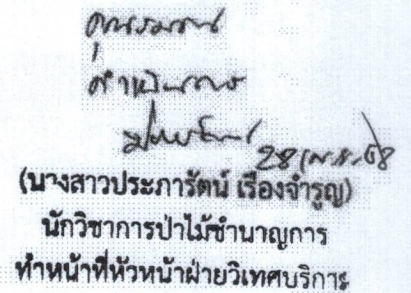 ดำเนินการ
28 เม.ย. 68
(นางสาวประภารัตน์ เรืองจำรูญ)
นักวิชาการป่าไม้ชำนาญการ
ทำหน้าที่หัวหน้าฝ่ายวิเทศบริการ